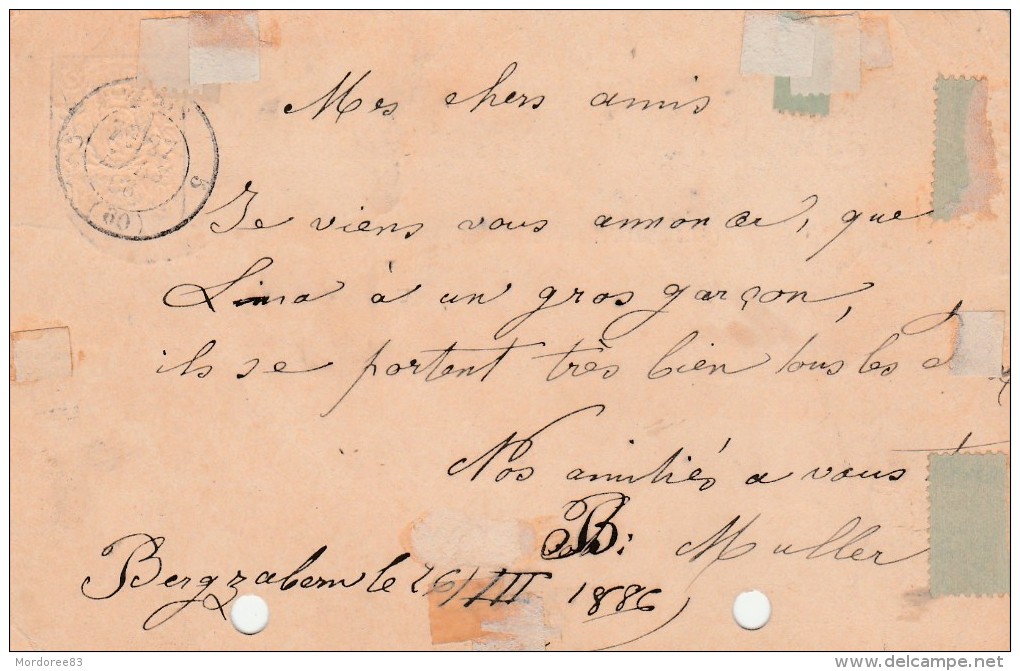 Mes chers amis
Je viens vous annoncer, que
Lina à un gros garçon,
ils se portent très bien tous les
Nos amitiés a vous
B: Muller
Bergzabern le 26/VIII 1886
(60)
Mordoree83
www.delcampe.net